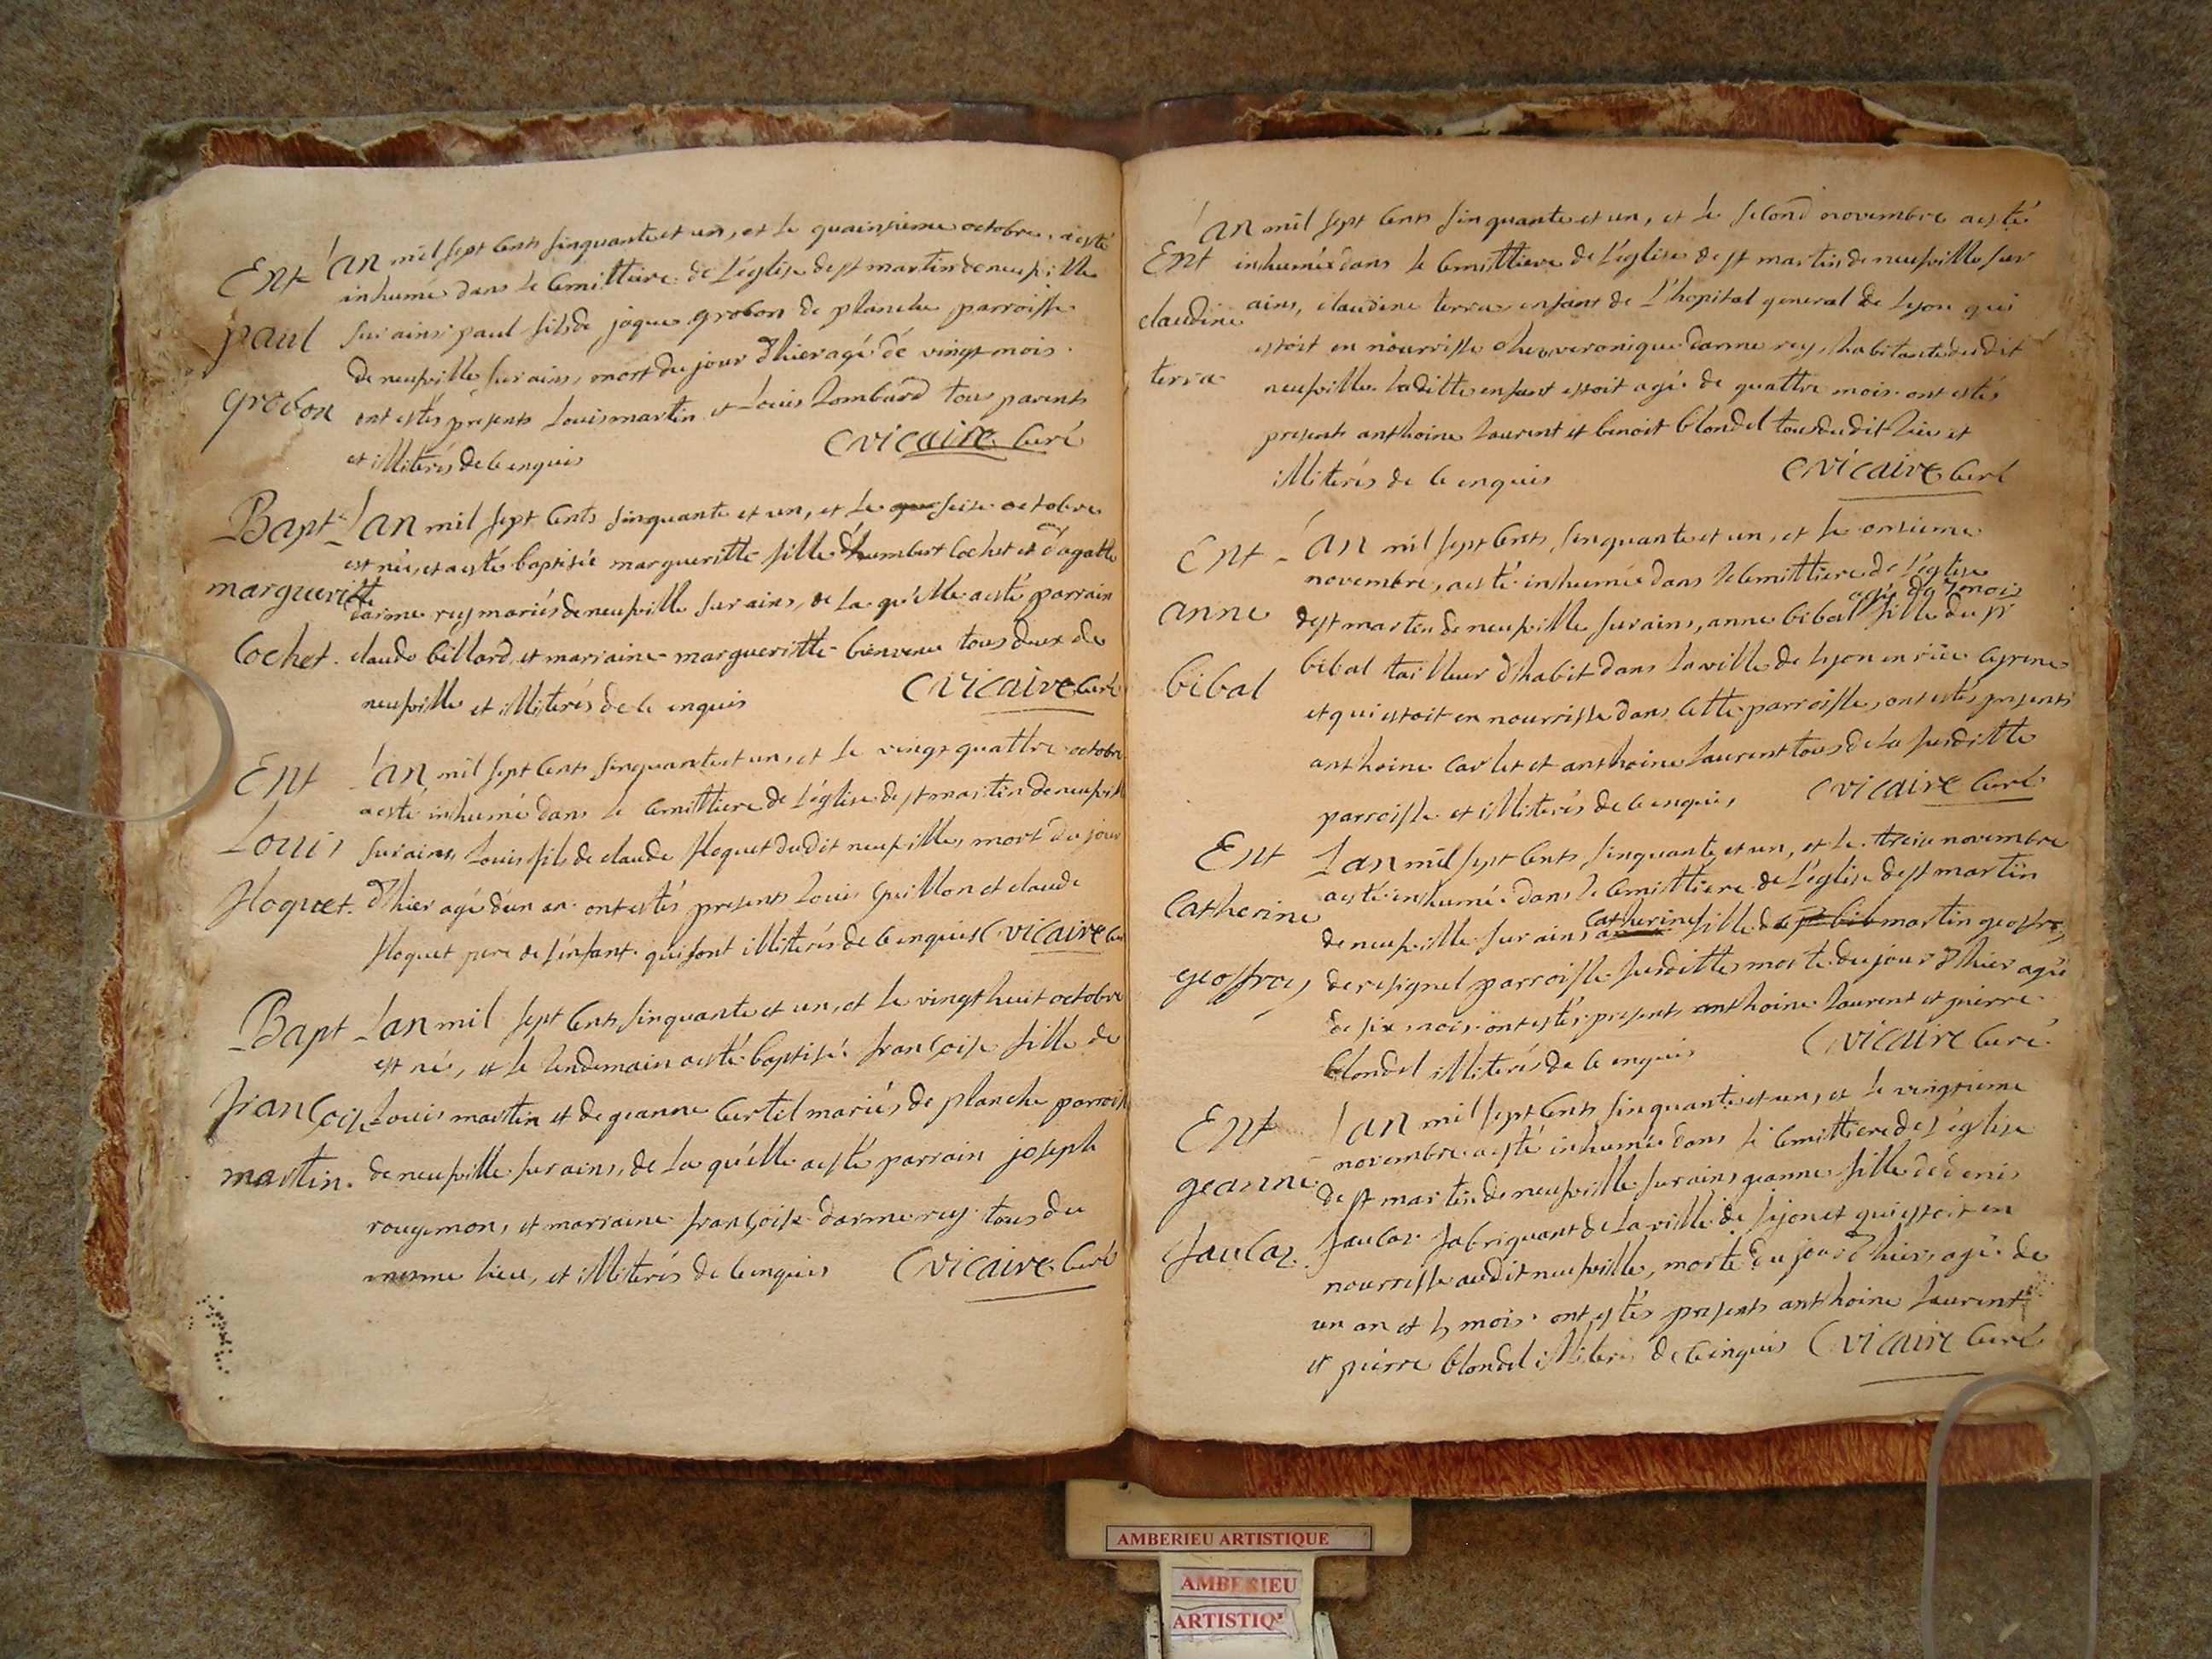 Ent
paul
grobon
l'an mil sept cents sinquante et un, et le quainsieme octobre, a esté
inhumé dans le cemittiere de l'église de st martin de neufville
sur ains paul fils de jaque grobon de planche parroisse
de neufville sur ains, mort du jour d'hier agé de vingt mois.
ont estés présents Louis martin et Louis Lombard tous parents
et illiterés de ce enquis
C vicaire Curé
Bapt
margueritte
Cochet.
Lan mil sept cents sinquante et un, et le seise octobre
est née, et a esté baptisée margueritte fille d'humbert Cochet et d'agatte
darme rey mariés de neufville sur ains, de la qu'elle a esté parrain
claude billard et mariaine margueritte bienvenu tous deux de
neufville et illiterés de ce enquis
C vicaire Curé
Ent
Louis
floquet.
l'an mil sept cents sinquante et un, et le vingt quattre octobre
a esté inhumé dans le cemittiere de l'église de st martin de neufvill
sur ains, Louis fils de claude floquet dudit neufville, mort du jour
d'hier agé d'un an. ont estés presents Louis guillon et claude
floquet pere de l'enfant. qui sont illiterés de ce enquis C vicaire Cu
Bapt
françoise
martin.
Lan mil sept cents sinquante et un, et le vingt huit octobre
est né, et le lendemain a esté baptisé françoise fille de
Louis martin et de geanne Curtil mariés de planche parroiss
de neufville sur ains, de la qu'elle a esté parrain joseph
rougemon, et marraine françoise darmerey tous du
mesme lieu, et illiterés de ce enquis
C vicaire Curé
Ent
claudine
terra
l'an mil sept cents sinquante et un, et le second novembre a esté
inhumée dans le cemittiere de l'église de st martin de neufville sur
ains, claudine terra enfant de l'hopital general de Lyon qui
estoit en nourrisse chez veronique darme rey, habitante dudit
neufville. laditte enfant estoit agé de quattre mois. ont estés
presents anthoine Laurent et benoit blondel tous dudit lieu et
illiterés de ce enquis
C vicaire Curé
Ent
anne
bibal
l'an mil sept cents, sinquante et un, et le onsieme
novembre, a esté inhumée dans le cemittiere de l'église
agé de 7 mois
de st martin de neufville sur ains, anne bibal fille du sr
bibal tailleur d'habit dans la ville de Lyon en rüe
et qui estoit en nourrisse dans cette parroisse, ont estés presents
anthoine Carlet et anthoine Laurent tous de la susditte
parroisse et illiterés de ce enquis,
C vicaire Curé
Ent
Catherine
geoffroy
Lan mil sept cents sinquante et un, et le treise novembre
a esté inhumé dans le cemittiere de l'église de st martin
de neufville sur ains catherine fille de martin geoffroy
de resignel parroisse susditte morte du jour d'hier agée
de six mois. ont estés present anthoine Laurent et pierre
blondel illiterés de ce enquis
C vicaire Curé.
Ent
geanne
faucaz.
l'an mil sept cents sinquante et un, et le vingtieme
novembre a esté inhumée dans le cemittiere de l'église
de st martin de neufville sur ains geanne fille de denis
faucaz fabriquant de la ville de Lyon et qui estoit en
nourrisse audit neufville, morte du jour d'hier, agé de
un an et mois. ont estés presents anthoine Laurent
et pierre blondel illiteré de ce enquis C vicaire Curé
AMBERIEU ARTISTIQUE
AMBERIEU
ARTISTIQ